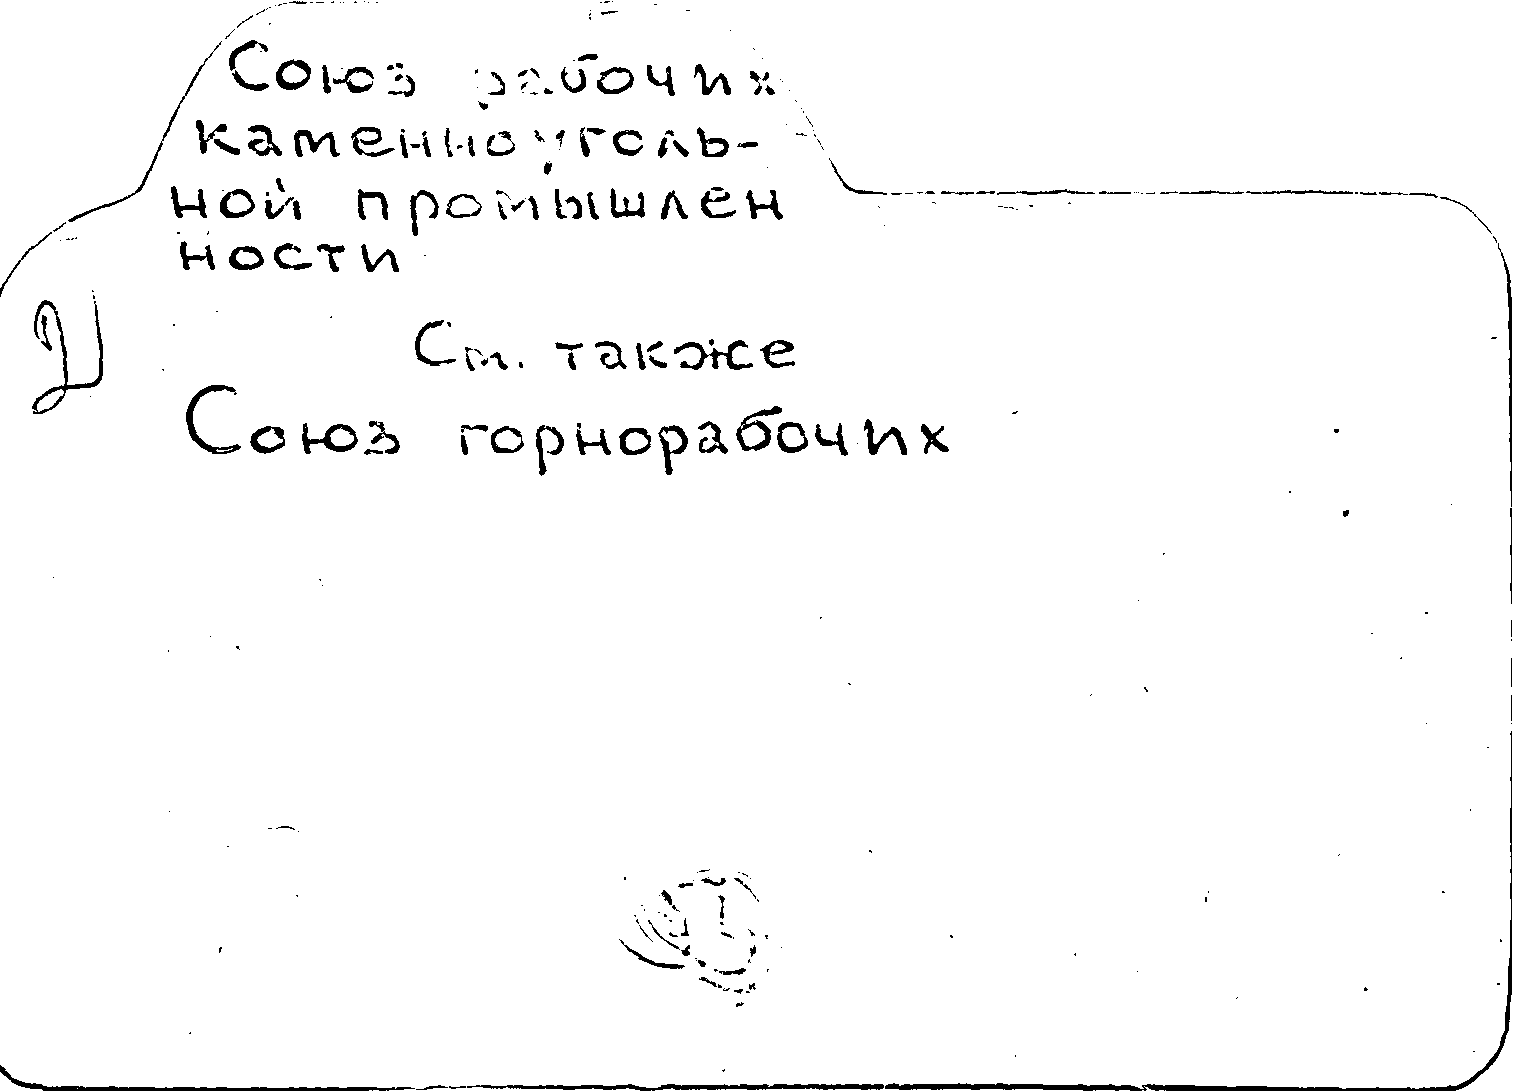 Союз рабочих
каменноуголь-
ной промышлен
ности
См. также
Союз горнорабочих